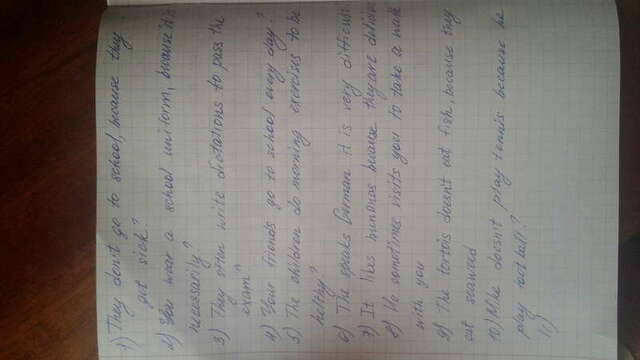 1) They don't go to school, because they
get sick?
2) You wear a school uniform, because it is
necessarily?
3) They often write dictations to pass the
exam?
4) Your friends go to school every day?
5) The children do morning exercises to be
helthy?
6) The speaks German it is very difficult
7) It likes bananas because they are delicious
8) He sometimes visits you to take a walk
with you
9) The tortois doesn't eat fish, because they
eat seaweed
10) Mike doesn't play tennis because he
play football?
11)